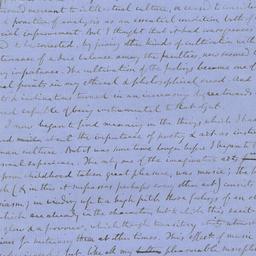 recreant to intellectual culture, or ceased to consider
practice of analysis as an essential condition both of
ial improvement. But I thought that it had consequences
to be corrected, by joining other kinds of cultivation with
tenance of a due balance among the faculties, now seemed to
ary importance. The cultivation of the feelings became one of
al points in my ethical & philosophical creed. And
inclinations turned in an increasing degree towards
capable of being instrumental to that object.
I now began to find meaning in the things which I had
about the importance of poetry & art as instru
man culture. But it was some time longer before I began to k
onal experience. The only one of the imaginative arts
from childhood taken great pleasure, was music; the b
h (& in this it surpasses perhaps every other art) consists
iasm; in winding up to a high pitch those feelings of an el
which are already in the character, but to which this excit
glow & a fervour, which though transitory
ious for sustaining them at other times. This effect of music
experienced; but like all my pleasurable suscepti